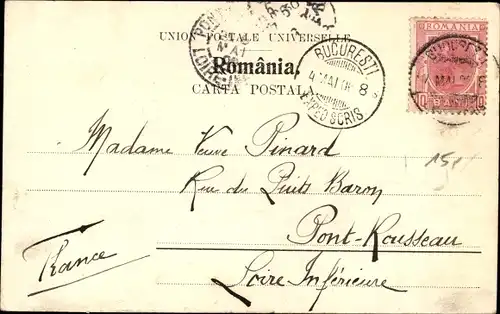 UNION POSTALE UNIVERSELLE
România.
CARTA POSTALA
BUCURESTI
4 MAI
8
EXPED SCRIS
ROMANIA
10 BANI 10
Madame Veuve Pinard
Rue du Puits Baron
Pont-Rousseau
Loire Inférieure
France